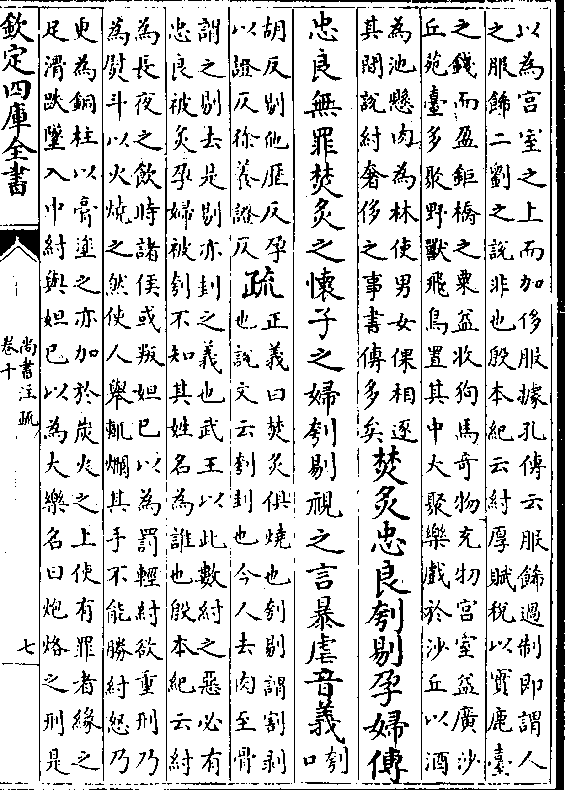 以為宮室之上而加侈服據孔傳云服飾過制即謂人
之服飾二劉之說非也殷本紀云紂厚賦稅以實鹿臺
之錢而盈鉅橋之粟益收狗馬奇物充物宮室益廣沙
丘苑臺多聚野獸飛鳥置其中大聚樂戲於沙丘以酒
為池懸肉為林使男女倮相逐
其間說紂奢侈之事書傳多矣
焚炙忠良刳剔孕婦傳
忠良無罪焚炙之懷子之婦刳剔視之言暴虐音義
刳
口
胡反剔他歷反孕
以證反徐養證反
疏
正義曰焚炙俱燒也刳剔謂割剥
也說文云刳刲也今人去肉至骨
謂之剔去是剔亦刲之義也武王以此數紂之惡必有
忠良被炙孕婦被刳不知其姓名為誰也殷本紀云紂
為長夜之飲時諸侯或叛妲己以為罰輕紂欲重刑乃
為熨斗以火燒之然使人舉輒爛其手不能勝紂怒乃
更為銅柱以膏塗之亦加於炭火之上使有罪者緣之
足滑跌墜入中紂與妲己以為大樂名曰炮烙之刑是
欽定四庫全書
尚書注疏
卷十
七